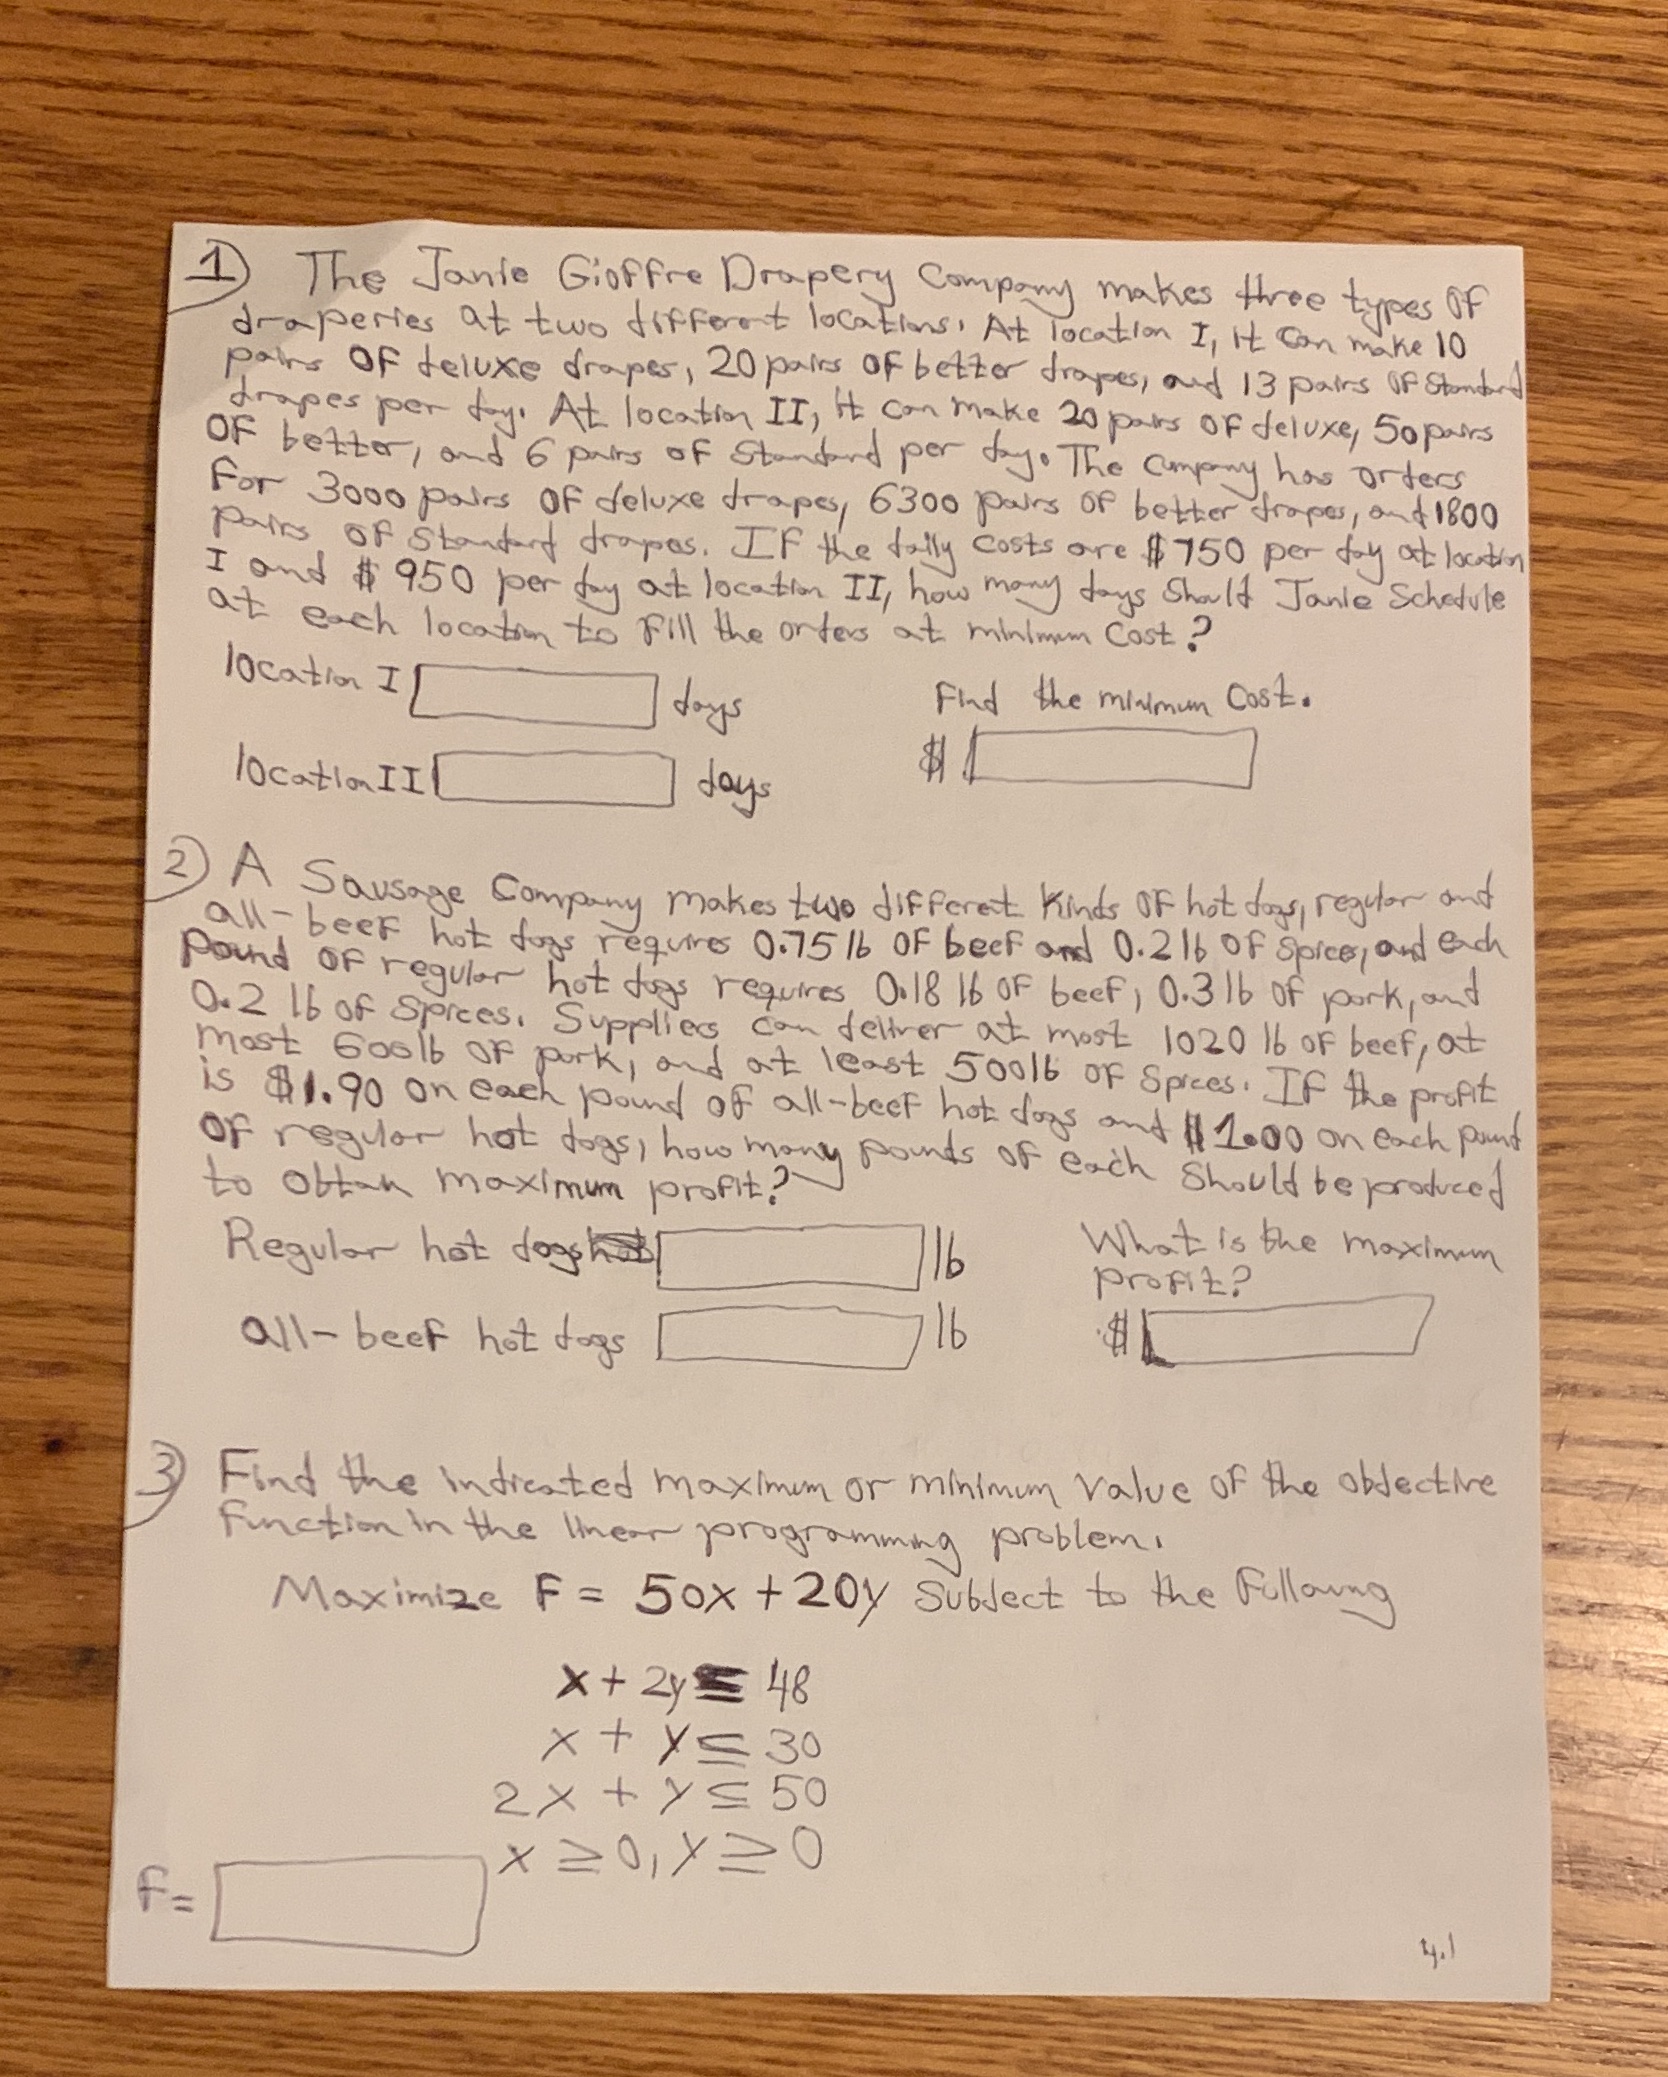 1) The Janie Gioffre Drapery Company makes three types of
draperies at two different locations. At location I, it can make 10
pairs of deluxe drapes, 20 pairs of better drapes, and 13 pairs of Standard
drapes per day. At location II, it can make 20 pairs of deluxe, 50 pairs
of better, and 6 pairs of Standard per day. The Company has orders
for 3000 pairs of deluxe drapes, 6300 pairs of better drapes, and 1800
pairs of Standard drapes. If the daily costs are $750 per day at location
I and $950 per day at location II, how many days should Janie Schedule
at each location to fill the orders at minimum Cost?
location I days
Find the minimum Cost.
location II days
$
2) A Sausage Company makes two different Kinds of hot dogs, regular and
all-beef hot dogs requires 0.75 lb of beef and 0.2 lb of spices, and each
pound of regular hot dogs requires 0.18 lb of beef, 0.3 lb of pork, and
0.2 lb of Spices. Suppliers can deliver at most 1020 lb of beef, at
most 600 lb of pork, and at least 500 lb of Spices. If the profit
is $1.90 on each pound of all-beef hot dogs and $1.00 on each pound
of regular hot dogs, how many pounds of each Should be produced
to obtain maximum profit?
Regular hot dogs lb
What is the maximum
profit?
all-beef hot dogs lb
$
3) Find the indicated maximum or minimum value of the objective
function in the linear programming problem.
Maximize F = 50x + 20y Subject to the following
x + 2y ≤ 48
x + y ≤ 30
2x + y ≤ 50
x ≥ 0, y ≥ 0
F =
4.1